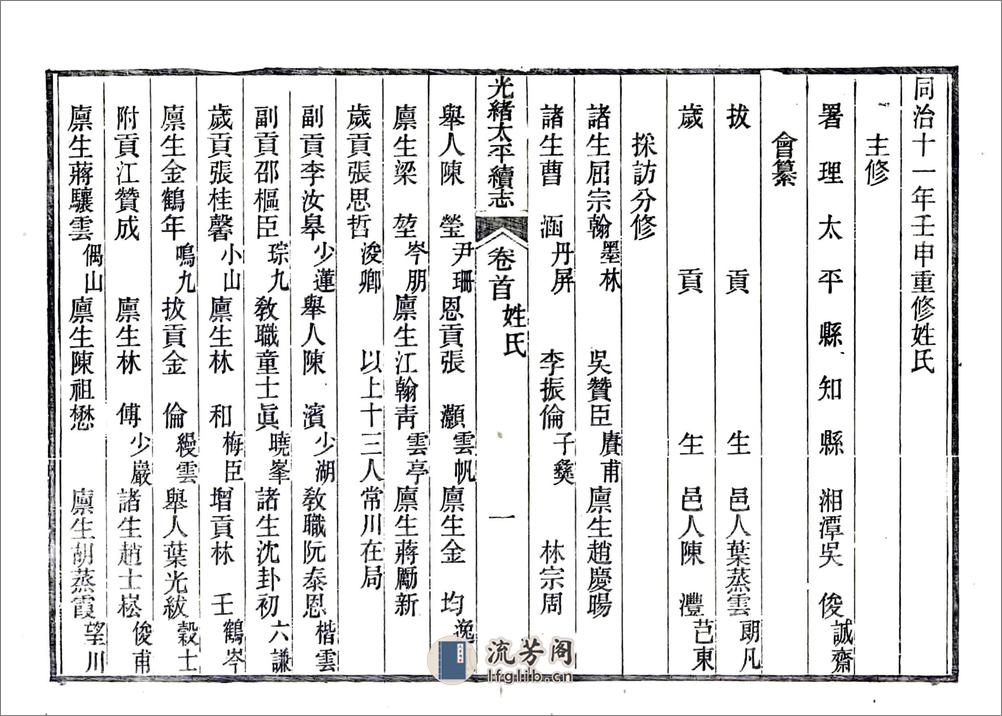 同治十一年壬申重修姓氏
主修
署理太平縣知縣 湘潭吳 俊 誠齋
會纂
拔貢生 邑人葉蒸雲 朗凡
歲貢生 邑人陳 灃 芑東
採訪分修
諸生屈宗翰 墨林 吳贊臣 賡甫 廪生趙慶暘
諸生曹 涵 丹屏 李振倫 子彝 林宗周
光緒太平續志 卷首 姓氏 一
舉人陳 瑩 尹珊 恩貢張 灝 雲帆 廪生金 均 逸
廪生梁 堃 岑朋 廪生江翰靑 雲亭 廪生蔣勵新
歲貢張思哲 浚卿 以上十三人常川在局
副貢李汝皋 少蓮 舉人陳 濱 少湖 敎職阮泰恩 楷雲
副貢邵樞臣 琮九 敎職童士眞 曉峯 諸生沈卦初 六謙
歲貢張桂馨 小山 廪生林 和 梅臣 增貢林 壬 鶴岑
廪生金鶴年 鳴九 拔貢金 倫 縵雲 舉人葉光紱 穀士
附貢江贊成 廪生林 傅 少巖 諸生趙士崧 俊甫
廪生蔣驤雲 偶山 廪生陳祖懋 廪生胡蒸霞 望川
流芳阁
lfglib.cn